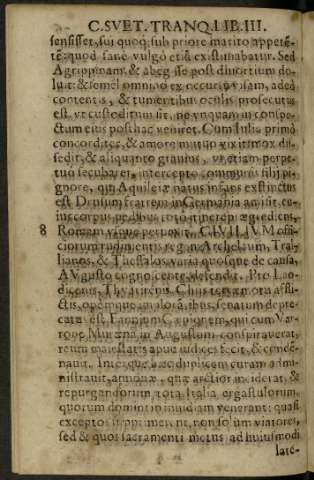 C. SVET. TRANQ. LIB. III.
sensisset, sui quoq; sub priore marito appetē-
tē: quod sanè vulgò etiā existimabatur. Sed
Agrippinam, & abegisse post diuortium do-
luit: & semel omnino ex occursu visam, adeò
contentis, & tumentibus oculis prosecutus
est, vt custoditum sit, ne vnquam in conspe-
ctum eius posthac veniret. Cum Iulia primò
concorditer, & amore mutuo vixit: mox dis-
sedit, & aliquanto grauius, vt etiam perpe-
tuo secubaret, intercepto communis filij pi-
gnore, qui Aquileiæ natus infans extinctus
est. Drusum fratrem in Germania amisit. cu-
ius corpus, pedibus toto itinere præegrediens,
8 Romam vsque peruexit. CIVILIVM offi-
ciorum rudimentis regem Archelaum, Tral-
lianos, & Thessalos, varia quosque de causa,
AVgusto cognoscente, defendit. Pro Lao-
dicenis, Thyatirenis, Chijs terræmotu affli-
ctis, opemque implorantibus, senatum depre-
catus est. Fannium Cæpionem, qui cum Var-
rone Murena in Augustum conspirauerat,
reum maiestatis apud iudices fecit, & condē-
nauit. Interque hæc duplicem curam admi-
nistrauit, annonæ, quæ arctior inciderat, &
repurgandorum tota Italia ergastulorum,
quorum domini in inuidiam venerant: quasi
exceptos supprimerent, non solùm viatores,
sed & quos sacramenti metus ad huiusmodi
late-